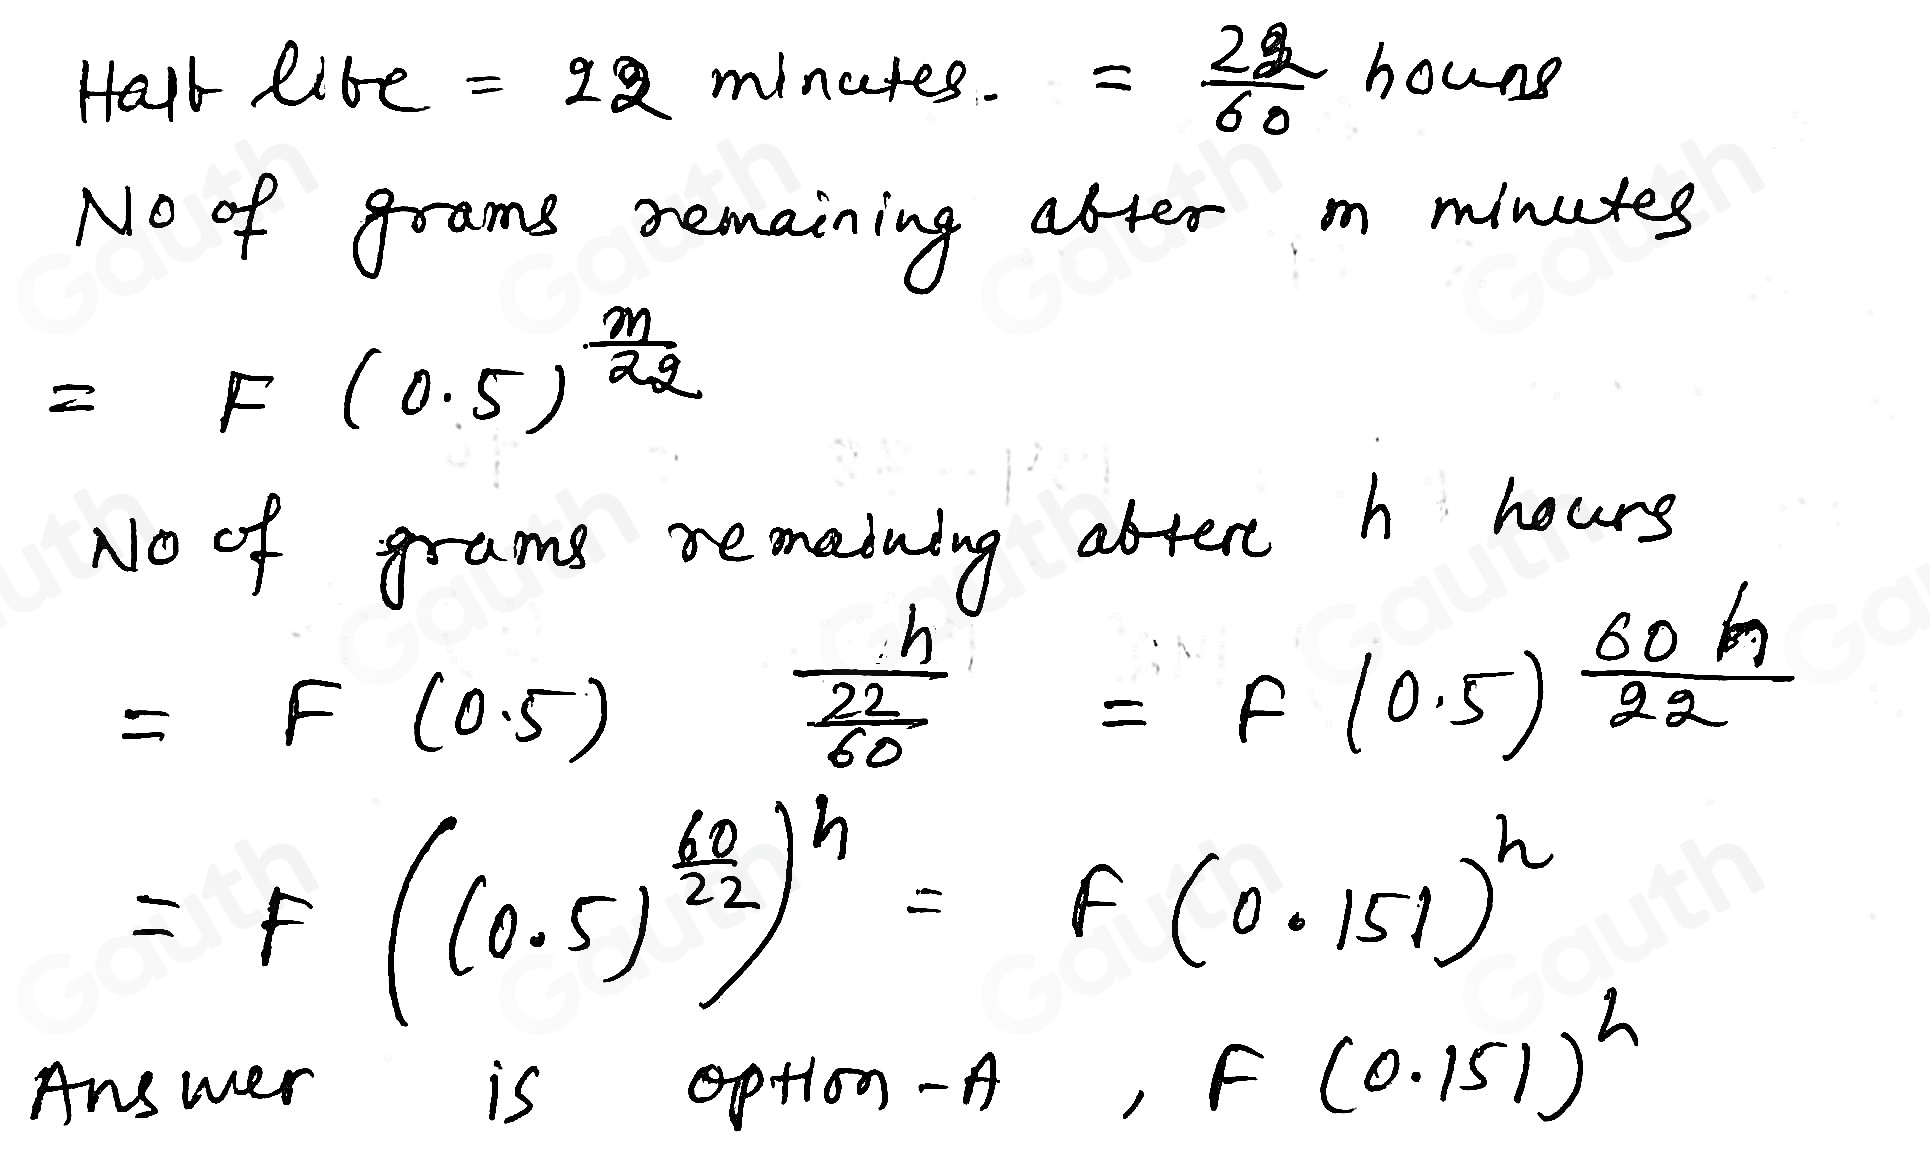 Half life = 22 minutes. = 22/60 hours
No of grams remaining after m minutes
= F (0.5)^(m/22)
No of grams remaining after h hours
= F (0.5)^(h/(22/60)) = F (0.5)^(60h/22)
= F ((0.5)^(60/22))^h = F (0.151)^h
Answer is option-A, F (0.151)^h